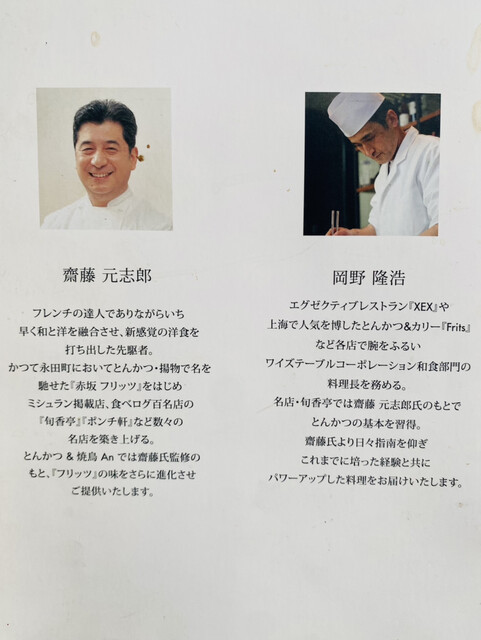 齋藤 元志郎
フレンチの達人でありながらいち
早く和と洋を融合させ、新感覚の洋食を
打ち出した先駆者。
かつて永田町においてとんかつ・揚物で名を
馳せた『赤坂 フリッツ』をはじめ
ミシュラン掲載店、食べログ百名店の
『旬香亭』『ポンチ軒』など数々の
名店を築き上げる。
とんかつ & 焼鳥 An では齋藤氏監修の
もと、『フリッツ』の味をさらに進化させ
ご提供いたします。
岡野 隆浩
エグゼクティブレストラン『XEX』や
上海で人気を博したとんかつ&カリー『Frits』
など各店で腕をふるい
ワイズテーブルコーポレーション和食部門の
料理長を務める。
名店・旬香亭では齋藤 元志郎氏のもとで
とんかつの基本を習得。
齋藤氏より日々指南を仰ぎ
これまでに培った経験と共に
パワーアップした料理をお届けいたします。